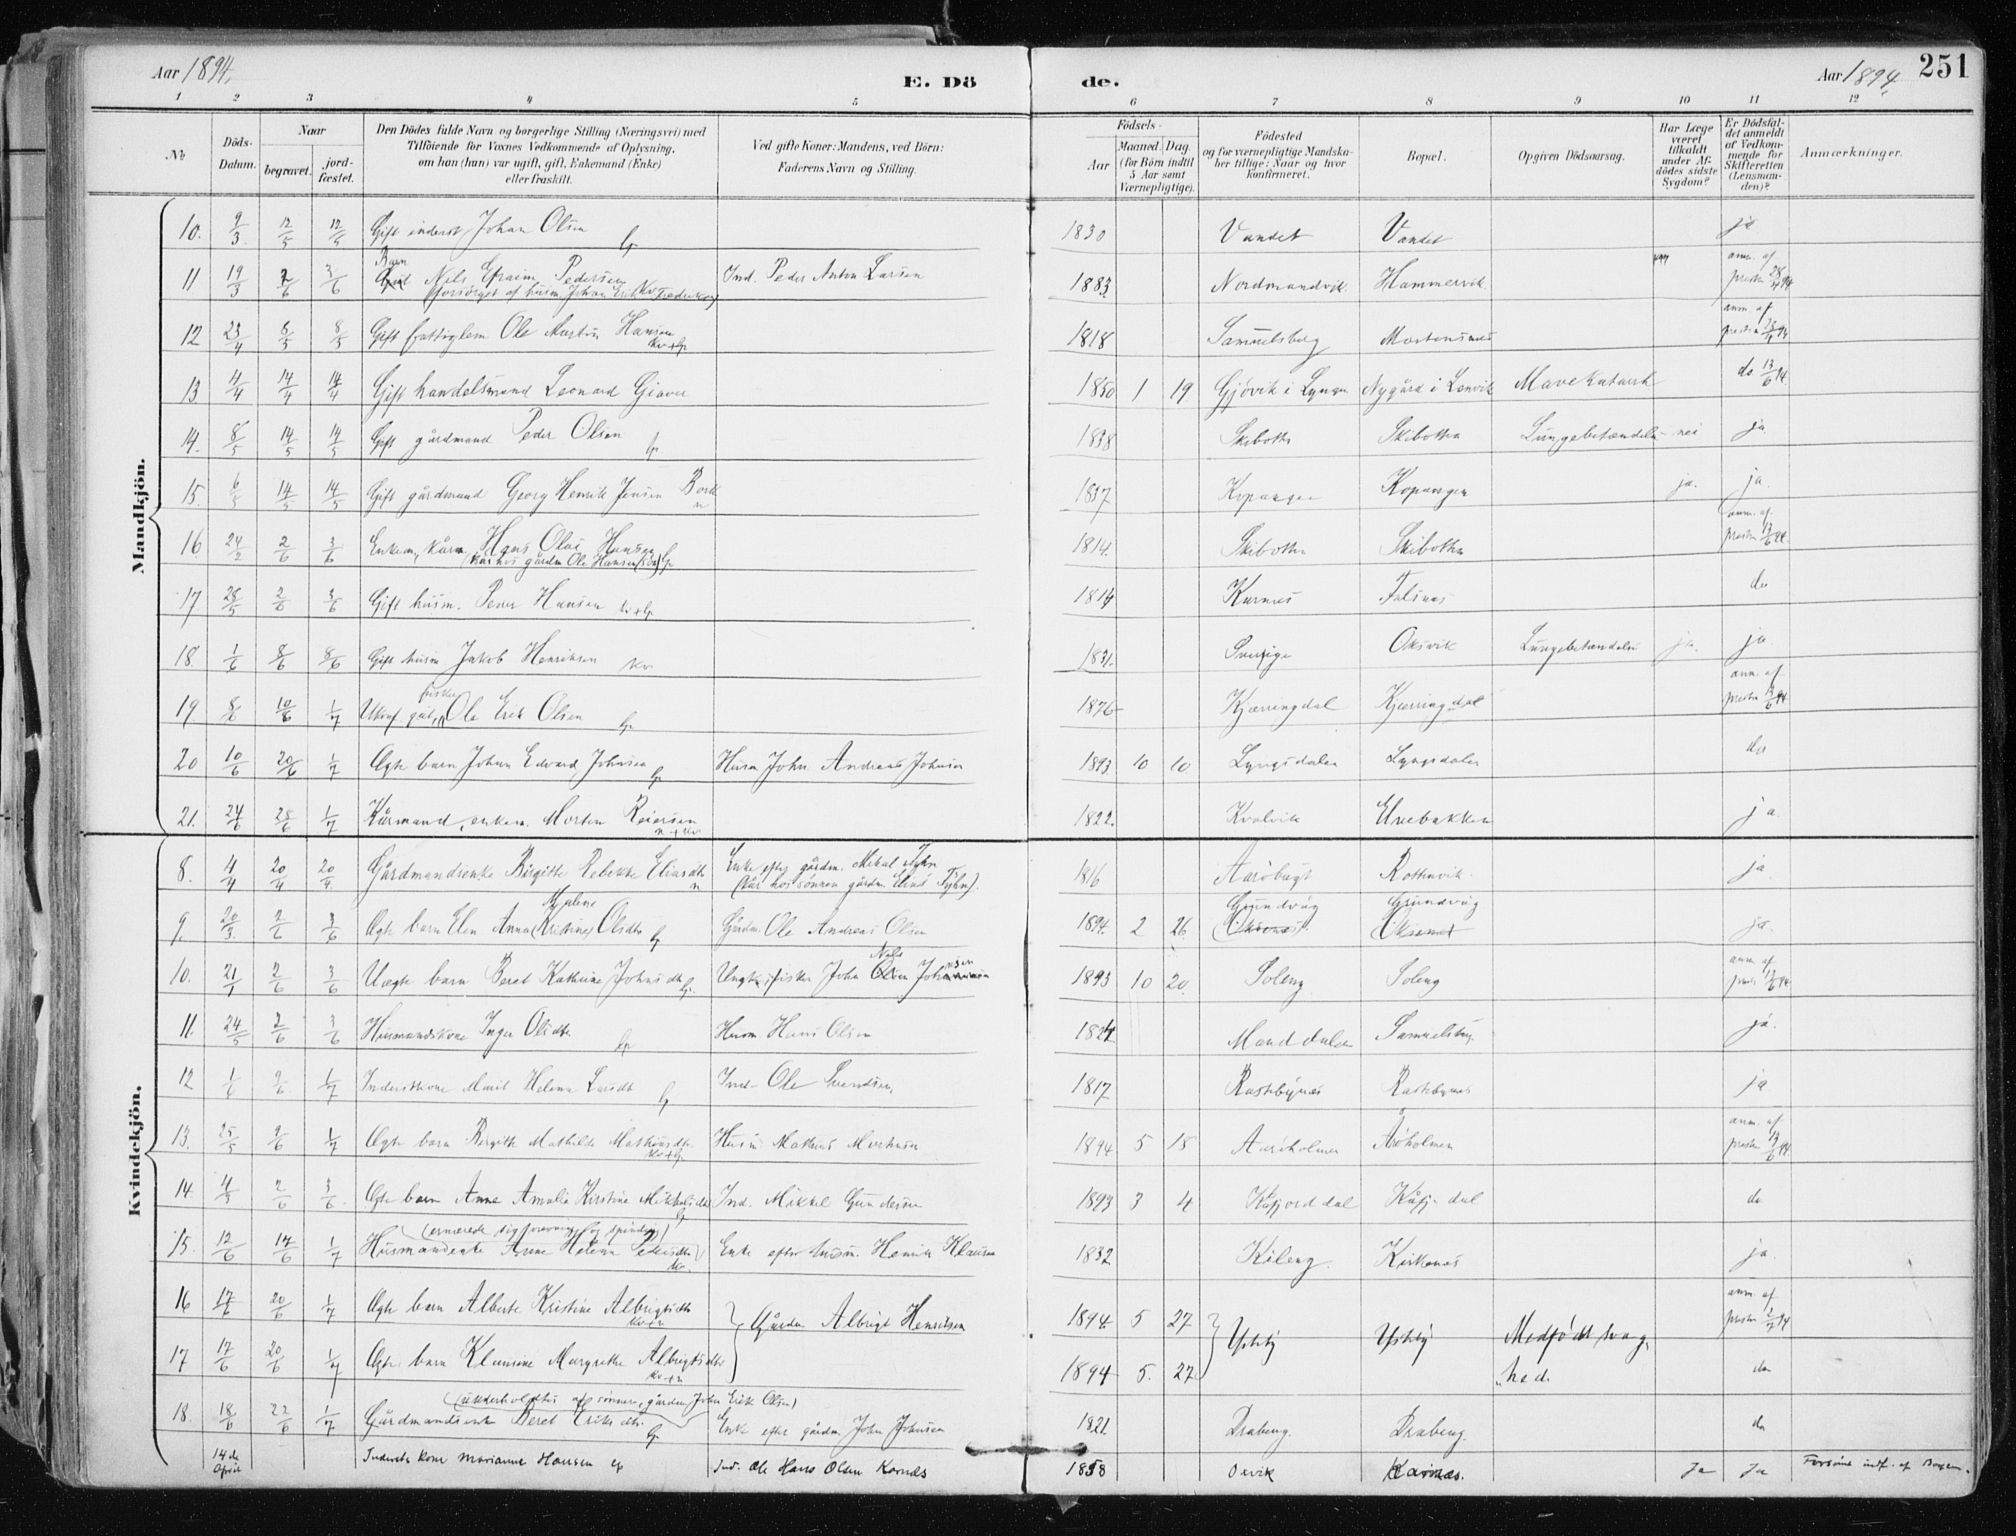 Aar 1894. E. Dö de. Aar 1894. 251
1 2 3 4 5 6 7 8 9 10 11 12
No Döds-Datum. Naar begravet. jord-fæstet. Den Dödes fulde Navn og borgerlige Stilling (Næringsvei) med Tilföiende for Voxnes Vedkommende af Oplysning, om han (hun) var ugift, gift, Enkemand (Enke) eller fraskilt. Ved gifte Koner: Mandens, ved Börn: Faderens Navn og Stilling. Födsels- Aar Maaned. Dag. (for Börn indtil 5 Aar samt Værnepligtige). Födested og for værnepligtige Mandska-ber tillige: Naar og hvor konfirmeret. Bopæl. Opgiven Dödsaarsag. Har Læge været tilkaldt under Af-dödes sidste Sygdom? Er Dödsfal-det anmeldt af Vedkom-mende for Skifteretten (Lensman-den)? Anmærkninger.
Mandkjön.
10. 9/3 12/5 12/5 Gift inderst Johan Olsen lp 1830 Vandet Vandet ja
11 19/3 2/6 3/6 Barn Nils Efraim Pedersen Ind. Peder Anton Larsen 1883 Nordmandvik Hammervik anm. af presten 28/4 94
(forsørget af husm. Johan Erik Fredriksen) kv
12 23/4 6/5 8/5 Gift fattiglem Ole Martin Hansen kv+lp 1818 Samuelsberg Mortensnes anm. af presten
13 4/4 14/4 14/4 Gift handelsmand Leonard Giæver 1850 1 19 Gjövik i Lyngen Nygård i Lenvik Mavekatarrh do 13/6 94.
14. 8/5 14/5 14/5 Gift gårdmand Peder Olsen lp 1838 Skibotn Skibotten Lungebetændelse nei ja.
15. 6/5 14/5 14/5 Gift gårdmand Georg Henrik Jensen Bork n 1837 Kopangen Kopangen ja. ja.
16 24/2 2/6 3/6 Enkem, kårm. Hans Olai Hansen 1814. Skibotten Skibotten anm. af presten 13/6 94.
(kår hos gårdm Ole Hansen (sön)) lp
17 28/5 2/6 3/6 Gift husm. Peder Hansen kv+lp 1814 Karnes Falsnes do
18. 1/6 8/6 8/6 Gift husm Jakob Henriksen kv 1831. Sverige Oksvik Lungebetændelse ja. ja.
19 8/6 10/6 1/7 Ukonf. gut, fisker Ole Erik Olsen lp 1876 Kjærringdal Kjærringdal anm. af presten 13/6 94
20 10/6 20/6 1/7 Ægte barn Johan Edvard Johnsen lp Husm John Andreas Johnsen 1893 10 10 Lyngsdalen Lyngsdalen do
21. 24/6 28/6 1/7 Kårmand, enkem. Morten Reiersen n+kv 1822. Kvalvik Elvebakken ja.
Kvindekjön.
8. 4/4 20/4 20/4. Gårdmandsenke Birgitte Rebekke Eliasdtr n Enke efter gårdm. Mikal Fyhn 1816 Aaröbugt Rottenvik. ja.
(kår hos sönnen gårdm. Elias Fyhn).
9. 20/3 2/6 3/6 Ægte barn Elen Anna (Kristine) Olsdtr lp Gårdm. Ole Andreas Olsen 1894. 2 26. Grundvåg Grundvåg ja.
10. 21/1 2/6 3/6 Uægte barn Beret Kathrine Johnsdtr lp. Ungk. fisker John Nils Johnsen 1893 10 20. Soleng Soleng anm. af prest 13/6 94
11. 24/5 2/6 3/6 Husmandskone Inger Olsdtr. lp Husm Hans Olsen 1824 Manddalen Samuelsberg. ja.
12 1/6 9/6 1/7 Inderstkone Marit Helene Larsdtr lp Ind. Ole Svendsen, 1817 Rastebynes Rastebynes ja
13. 25/5 9/6 1/7 Ægte barn Birgitte Mathilde Mathiasdtr. kv+lp Husm Mathias Mathisen 1894 5 15 Aaröholmen Åröholmen anm. af presten 13/6 94.
14. 4/3 2/6 3/6. Ægte barn Anne Amalie Kirstine Mikkelsdtr lp Ind. Mikkel Gundersen 1893 3 4 Kåfjorddal Kåfj. dal do
(ernærede sig
15. 12/6 14/6 1/7 Husmandenke Anne Helene Pedersdtr kv. Enke efter husm. Henrik Klausen 1832 Koleng. Kirkenes ja.
16 17/6 20/6 1/7 Ægte barn Alberte Kristine Albrigtsdtr kv+n Gårdm. Albrigt Henriksen 1894. 5 27 Ysteby Ysteby Medfödt svag- anm. af presten 2/7 94
17 17/6 20/6 1/7 Ægte barn Klausine Margrethe Albrigtsdtr kv+n 1894 5. 27. hed. do
(underholdtes af sönnen, gårdm John Erik Olsen)
18. 18/6 22/6 1/7 Gårdmandsenke Beret Eriksdtr. lp Enke efter gårdm. John Johnsen 1821. Draberg. Draberg. do
14de April Inderste kone Marianne Hansen lp Ind. Ole Hans Olsen Karnæs 1858 Oxvik Karnæs. Ja Ja